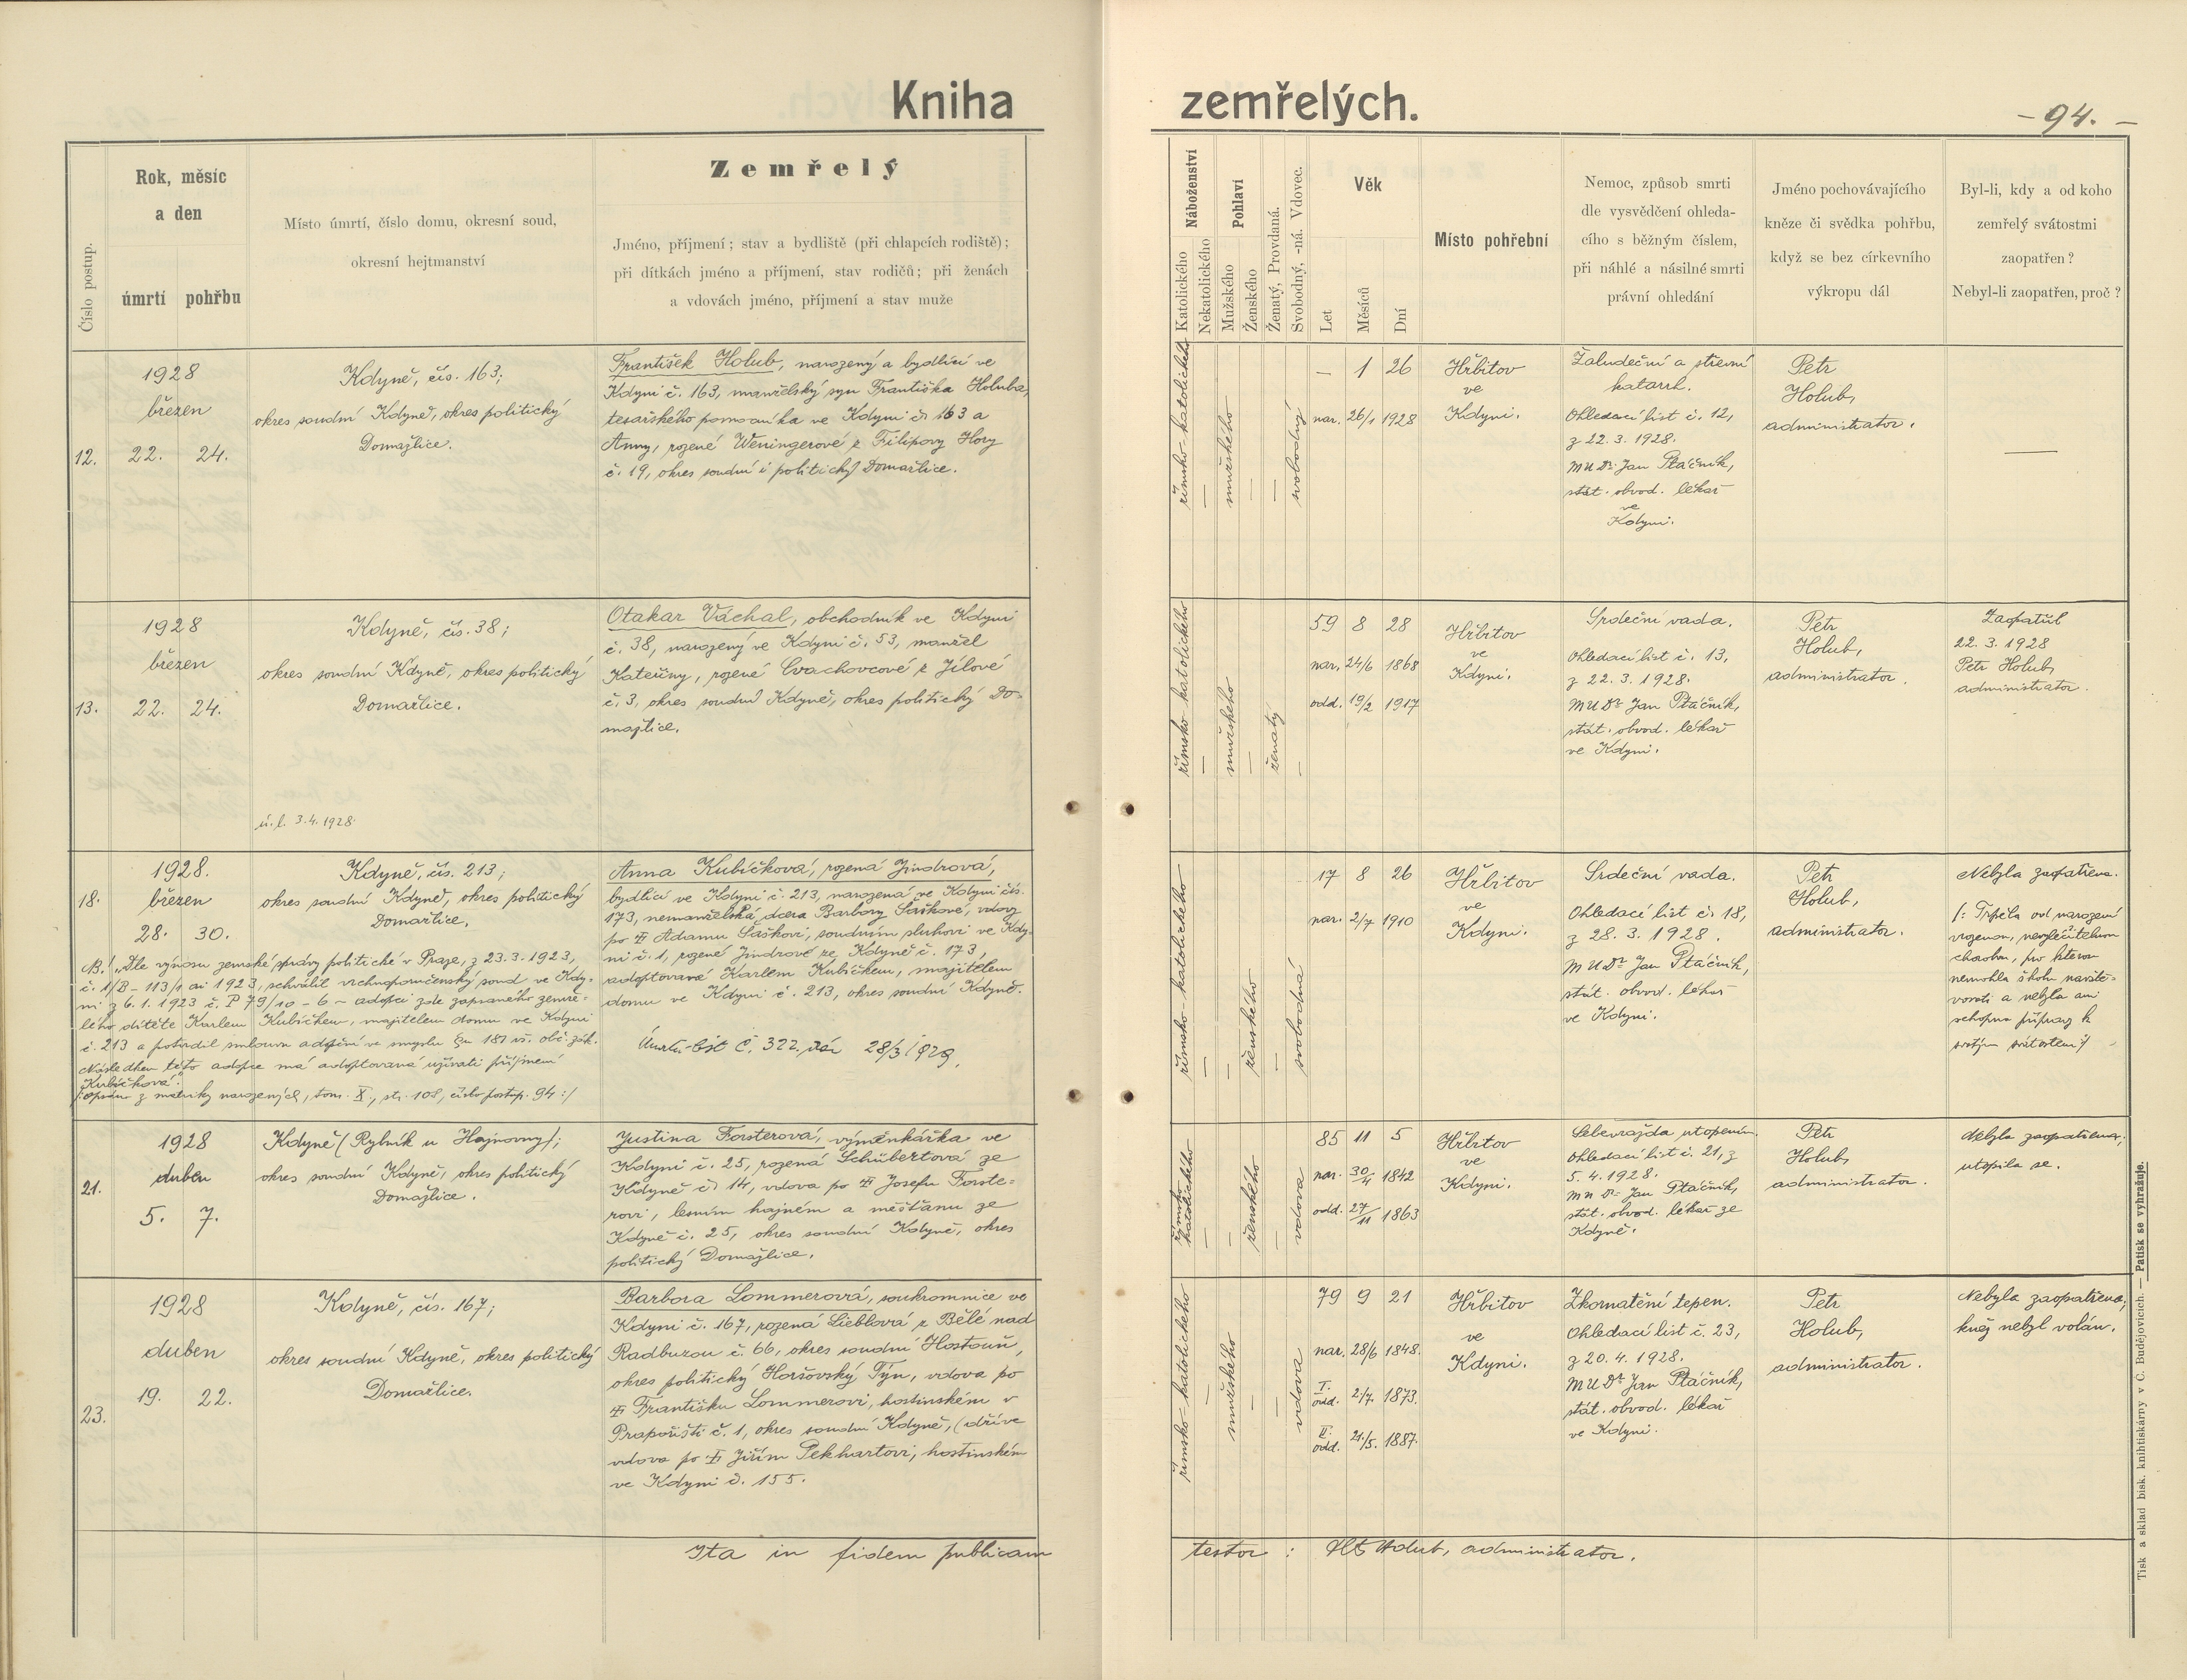 Kniha zemřelých.
- 94. -
Číslo postup.
Rok, měsíc
a den
úmrtí pohřbu
Místo úmrtí, číslo domu, okresní soud,
okresní hejtmanství
Zemřelý
Jméno, příjmení; stav a bydliště (při chlapcích rodiště);
při dítkách jméno a příjmení, stav rodičů; při ženách
a vdovách jméno, příjmení a stav muže
Náboženství
Katolického
Nekatolického
Pohlaví
Mužského
Ženského
Ženatý, Provdaná.
Svobodný, -ná. Vdovec.
Věk
Let
Měsíců
Dní
Místo pohřební
Nemoc, způsob smrti
dle vysvědčení ohleda-
cího s běžným číslem,
při náhlé a násilné smrti
právní ohledání
Jméno pochovávajícího
kněze či svědka pohřbu,
když se bez církevního
výkropu dál
Byl-li, kdy a od koho
zemřelý svátostmi
zaopatřen?
Nebyl-li zaopatřen, proč?
12.
1928
březen
22. 24.
Kdyně, čís. 163;
okres soudní Kdyně, okres politický
Domažlice.
František Holub, narozený a bydlící ve
Kdyni č. 163, manželský syn Františka Holuba,
tesařského pomocníka ve Kdyni č. 163 a
Anny, rozené Weningerové z Filipovy Hory
č. 19, okres soudní i politický Domažlice.
římsko-katolického
—
mužského
—
—
svobodný
— 1 26
nar. 26/1 1928
Hřbitov
ve
Kdyni.
Žaludeční a střevní
katarrh.
Ohledací list č. 12,
z 22. 3. 1928.
MUDr. Jan Ptáčník,
stát. obvod. lékař
ve
Kdyni.
Petr
Holub,
administrator.
—
13.
1928
březen
22. 24.
Kdyně, čís. 38;
okres soudní Kdyně, okres politický
Domažlice.
ú. l. 3. 4. 1928.
Otakar Váchal, obchodník ve Kdyni
č. 38, narozený ve Kdyni č. 53, manžel
Kateřiny, rozené Cvachovcové z Jílové
č. 3, okres soudní Kdyně, okres politický Do-
mažlice.
římsko-katolického
—
mužského
—
ženatý
—
59 8 28
nar. 24/6 1868
odd. 19/2 1917
Hřbitov
ve
Kdyni.
Srdeční vada.
Ohledací list č. 13,
z 22. 3. 1928.
MUDr. Jan Ptáčník,
stát. obvod. lékař
ve Kdyni.
Petr
Holub,
administrator.
Zaopatřil
22. 3. 1928
Petr Holub,
administrator.
18.
1928.
březen
28. 30.
Kdyně, čís. 213;
okres soudní Kdyně, okres politický
Domažlice.
NB.! „Dle výnosu zemské správy politické v Praze, z 23. 3. 1923,
č. 1/B - 113/1 ai 1923, schválil vrchnoporučenský soud ve Kdy-
ni z 6. 1. 1923 č. P 79/10 - 6 - adopci zde zapsaného zemře-
lého dítěte Karlem Kubíčkem, majitelem domu ve Kdyni
č. 213 a potvrdil smlouvu adopční ve smyslu §u 181 vš. obč. zák.
Následkem této adopce má adoptovaná užívati příjmení
„Kubíčková".
/:opsáno z matriky narozených, tom. X., str. 108, číslo postup. 94:/
Anna Kubíčková, rozená Jindrová,
bydlící ve Kdyni č. 213, narozená ve Kdyni čís.
173, nemanželská dcera Barbory Saškové, vdovy
po ☩ Adamu Saškovi, soudním sluhovi ve Kdy-
ni č. 1, rozené Jindrové ze Kdyně č. 173,
adoptovaná Karlem Kubíčkem, majitelem
domu ve Kdyni č. 213, okres soudní Kdyně.
Úmrtní list č. 322, dán 28/3 1929.
římsko-katolického
—
—
ženského
—
svobodná
17 8 26
nar. 2/7 1910
Hřbitov
ve
Kdyni.
Srdeční vada.
Ohledací list č. 18,
z 28. 3. 1928.
MUDr. Jan Ptáčník,
stát. obvod. lékař
ve Kdyni.
Petr
Holub,
administrator.
Nebyla zaopatřena.
/: Trpěla od narození
vrozenou, nevyléčitelnou
chorobou, pro kterou
nemohla školu navště-
vovati a nebyla ani
schopna přípravy k
svatým svátostem:/
21.
1928
duben
5. 7.
Kdyně (Rybník u Hajnovny);
okres soudní Kdyně, okres politický
Domažlice.
Justina Forsterová, výměnkářka ve
Kdyni č. 25, rozená Schübertová ze
Kdyně č. 14, vdova po ☩ Josefu Forste-
rovi, lesním hajném a měšťanu ze
Kdyně č. 25, okres soudní Kdyně, okres
politický Domažlice.
římsko
katolického
—
—
ženského
—
vdova
85 11 5
nar. 30/4 1842
odd. 27/11 1863
Hřbitov
ve
Kdyni.
Sebevražda utopením.
Ohledací list č. 21, z
5. 4. 1928.
MUDr. Jan Ptáčník,
stát. obvod. lékař ze
Kdyně.
Petr
Holub,
administrator.
Nebyla zaopatřena,
utopila se.
23.
1928
duben
19. 22.
Kdyně, čís. 167;
okres soudní Kdyně, okres politický
Domažlice.
Barbora Lommerová, soukromnice ve
Kdyni č. 167, rozená Lieblová z Bělé nad
Radbuzou č. 66, okres soudní Hostouň,
okres politický Horšovský Týn, vdova po
☩ Františku Lommerovi, hostinském v
Prapořišti č. 1, okres soudní Kdyně, (dříve
vdova po ☩ Jiřím Pekhartovi, hostinském
ve Kdyni č. 155.
římsko-katolického
—
mužského
—
—
vdova
79 9 21
nar. 28/6 1848.
I.
odd. 2/7 1873.
II.
odd. 21/5. 1887.
Hřbitov
ve
Kdyni.
Zkornatění tepen.
Ohledací list č. 23,
z 20. 4. 1928.
MUDr. Jan Ptáčník,
stát. obvod. lékař
ve Kdyni.
Petr
Holub,
administrator.
Nebyla zaopatřena,
kněz nebyl volán.
Ita in fidem publicam testor: Holub, administrator.
Tisk a sklad bisk. knihtiskárny v Č. Budějovicích. — Patisk se vyhražuje.